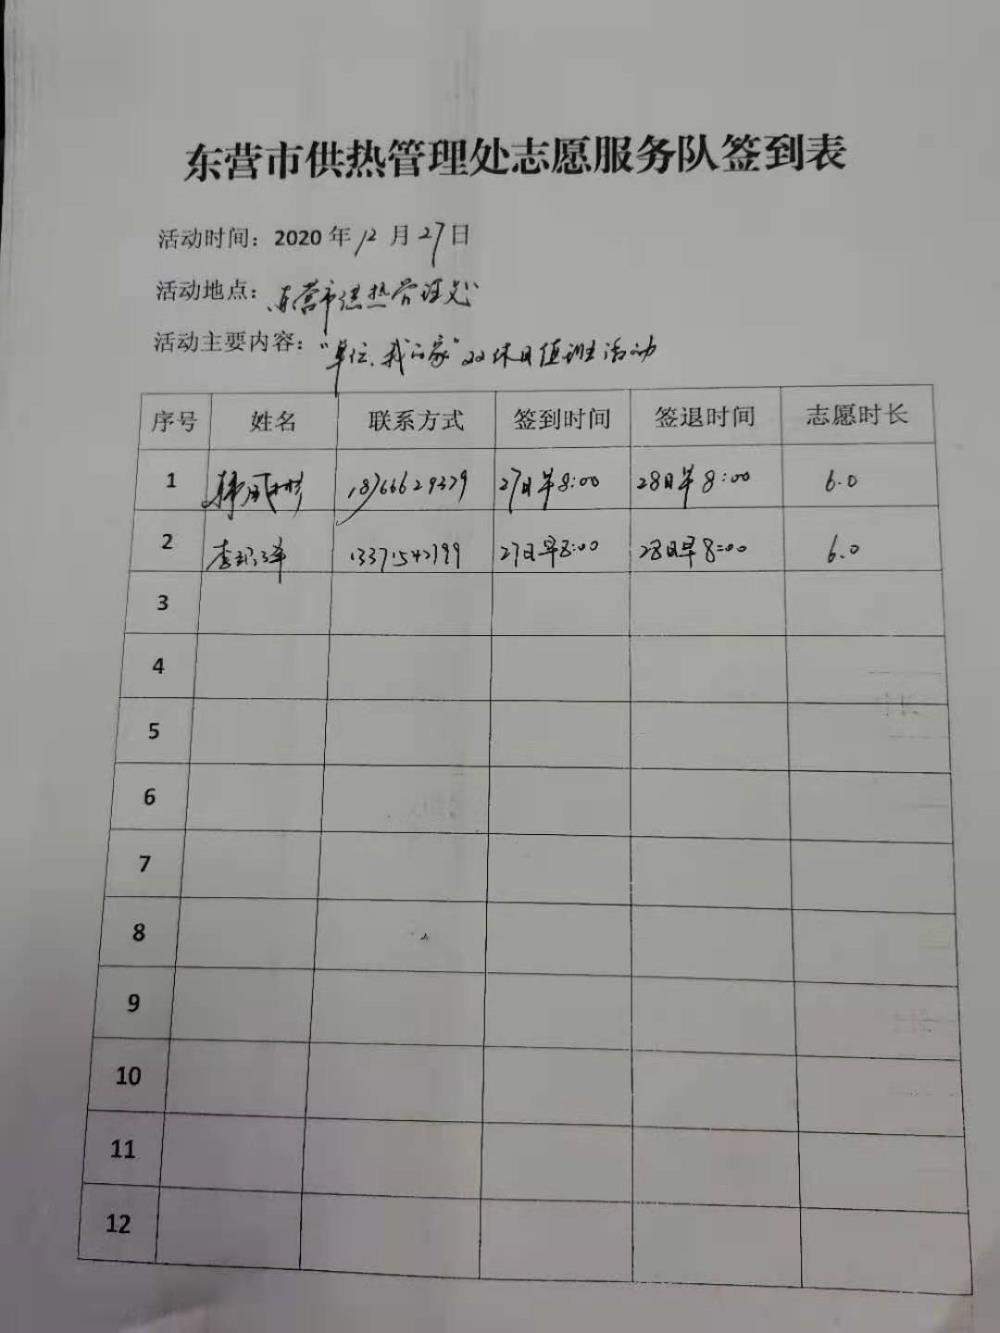 东营市供热管理处志愿服务队签到表
活动时间：2020 年 12 月 27 日
活动地点：东营市供热管理处
活动主要内容：“单位、我的家”双休日值班活动
序号 姓名 联系方式 签到时间 签退时间 志愿时长
1 韩 18766629379 27日早8:00 28日早8:00 6.0
2 李 13371542799 27日早8:00 28日早8:00 6.0
3
4
5
6
7
8
9
10
11
12